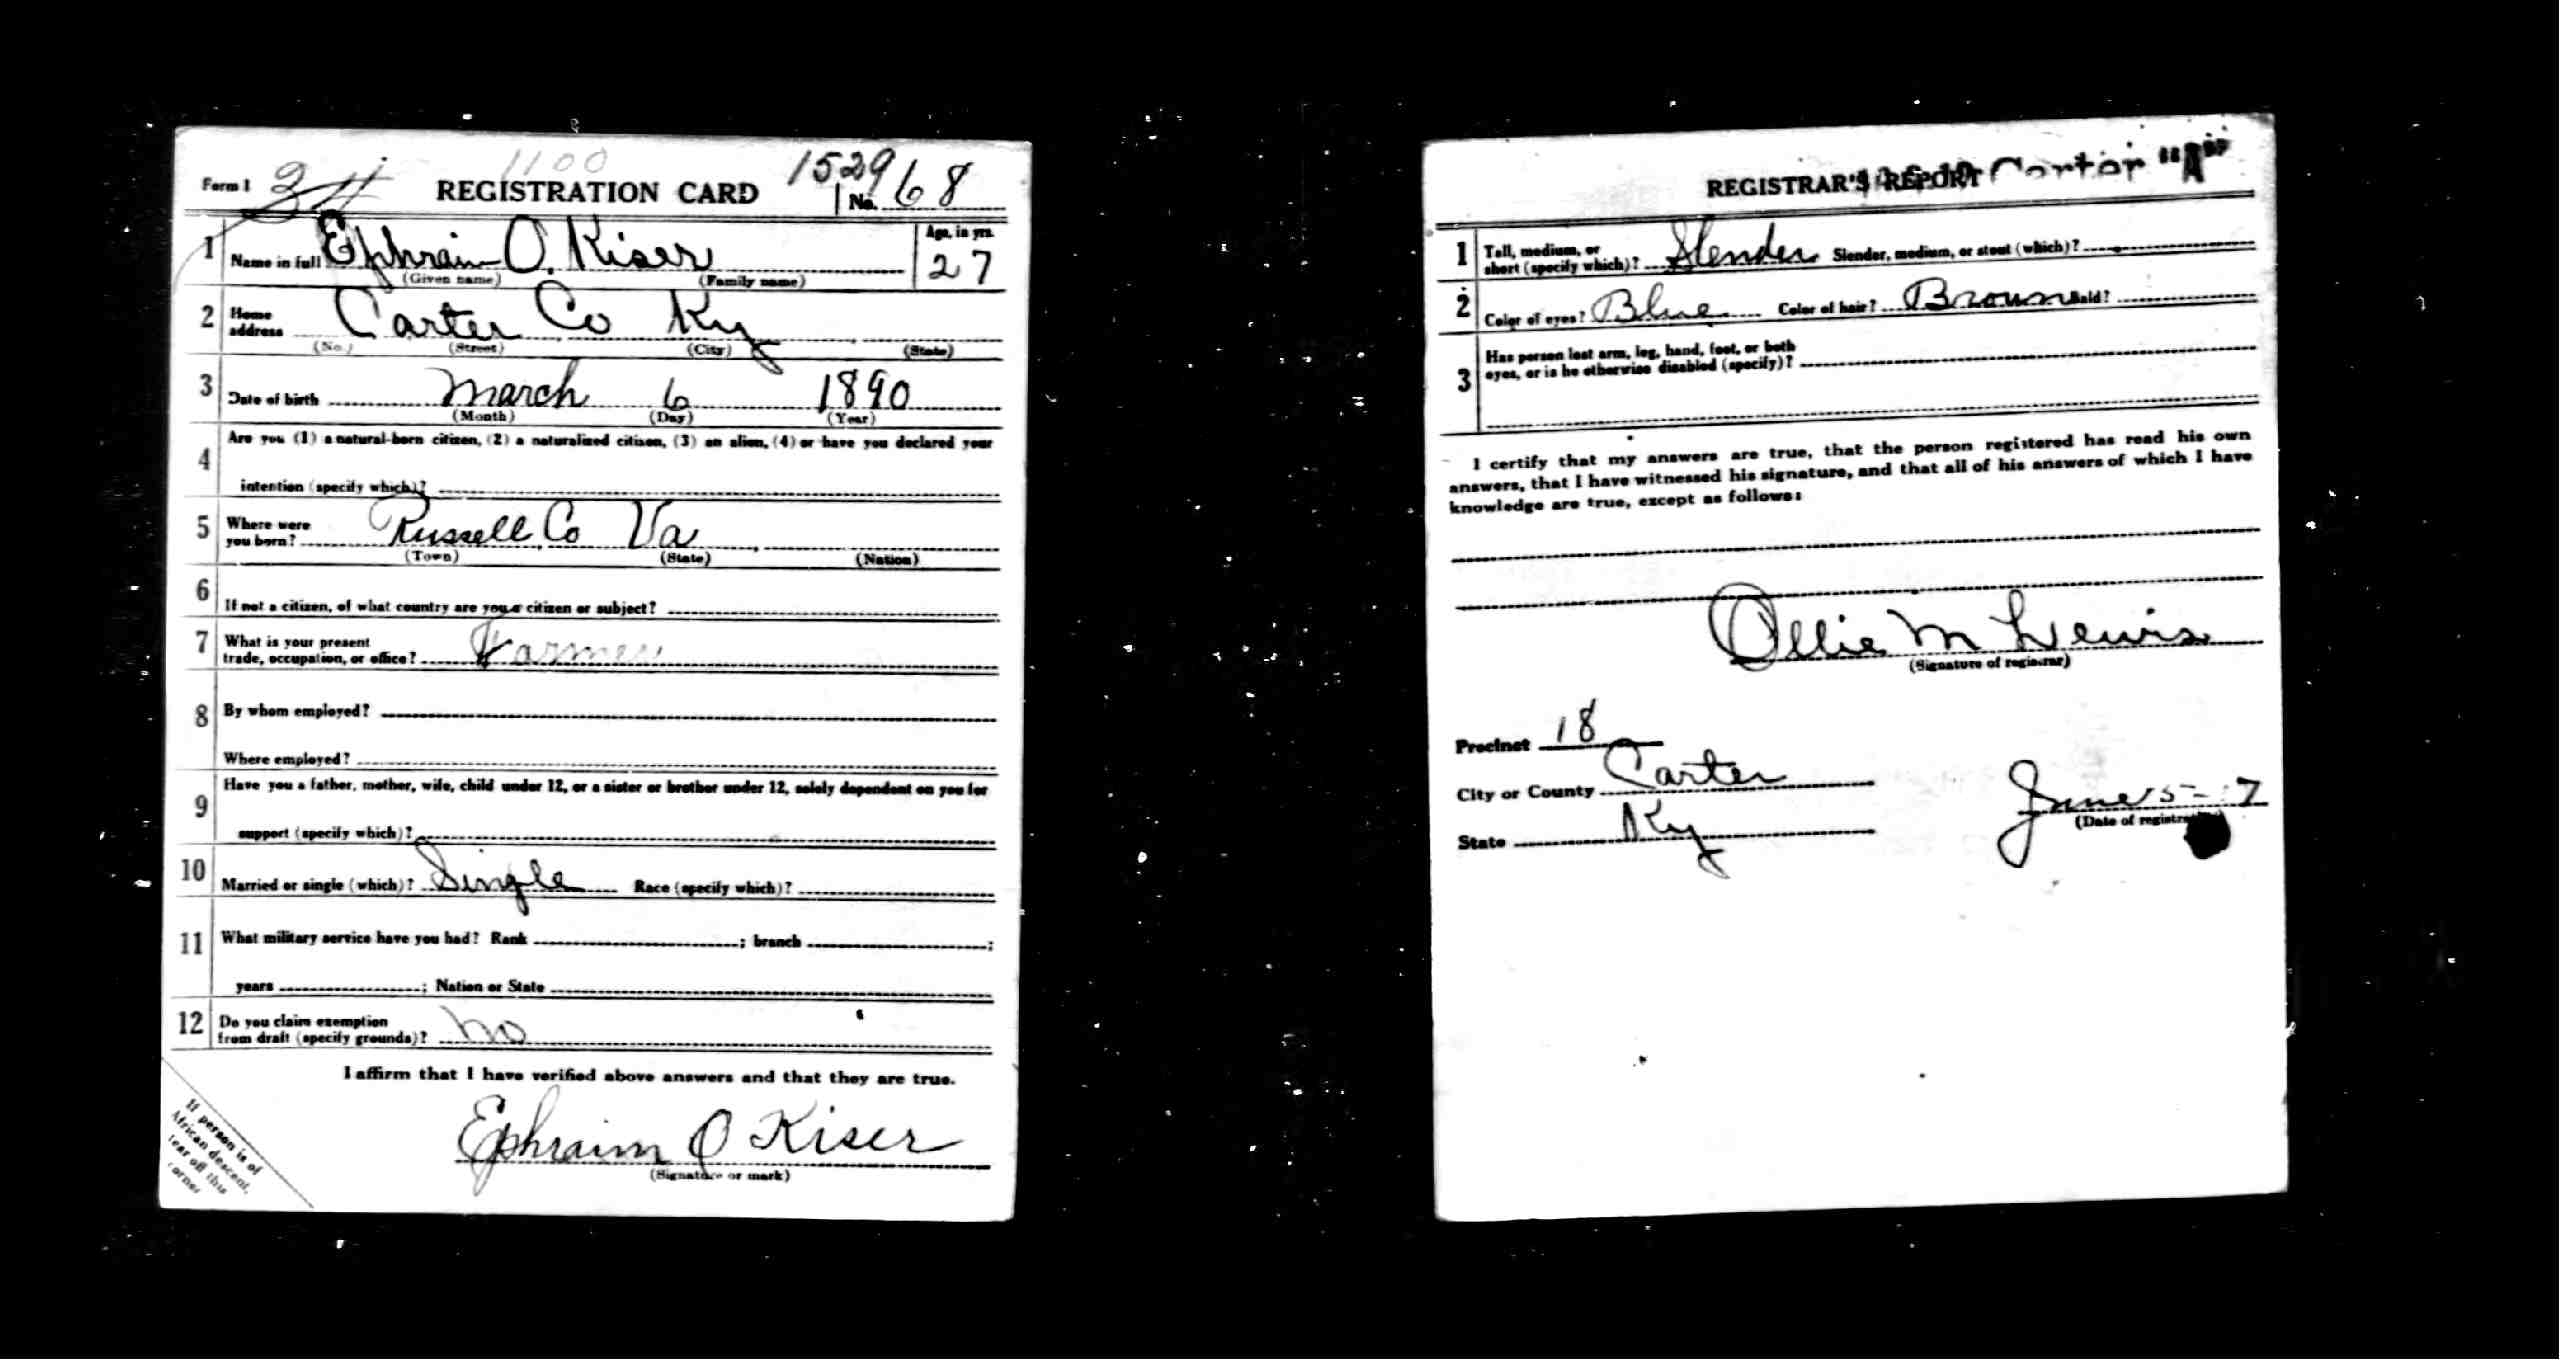 1100
1529
Form 1 REGISTRATION CARD No. 68
1 Name in full Ephraim O. Kiser Age, in yrs. 27
(Given name) (Family name)
2 Home address Carter Co Ky
(No.) (Street) (City) (State)
3 Date of birth March 6 1890
(Month) (Day) (Year)
4 Are you (1) a natural-born citizen, (2) a naturalized citizen, (3) an alien, (4) or have you declared your
intention (specify which)?
5 Where were you born? Russell Co Va
(Town) (State) (Nation)
6 If not a citizen, of what country are you a citizen or subject?
7 What is your present trade, occupation, or office? Farmer
8 By whom employed?
Where employed?
9 Have you a father, mother, wife, child under 12, or a sister or brother under 12, solely dependent on you for
support (specify which)?
10 Married or single (which)? Single Race (specify which)?
11 What military service have you had? Rank ; branch ;
years ; Nation or State
12 Do you claim exemption from draft (specify grounds)? no
I affirm that I have verified above answers and that they are true.
Ephraim O Kiser
(Signature or mark)
If person is of
African descent,
tear off this
corner
REGISTRAR'S REPORT Carter "A"
1 Tall, medium, or short (specify which)? Slender Slender, medium, or stout (which)?
2 Color of eyes? Blue Color of hair? Brown Bald?
3 Has person lost arm, leg, hand, foot, or both
eyes, or is he otherwise disabled (specify)?
I certify that my answers are true, that the person registered has read his own
answers, that I have witnessed his signature, and that all of his answers of which I have
knowledge are true, except as follows:
Ollie M Lewis
(Signature of registrar)
Precinct 18
City or County Carter
State Ky
June 5 - 17
(Date of registration)